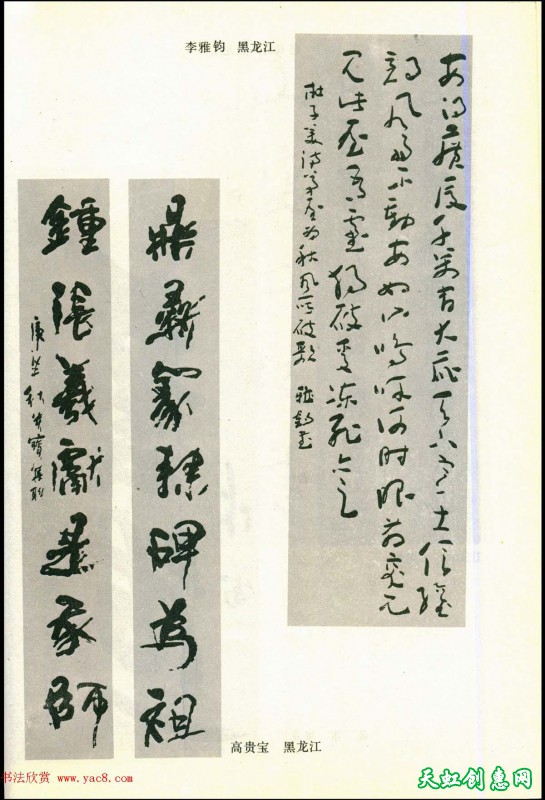 李雅钧 黑龙江
安得廣厦千万间大庇天下寒士俱歡
颜风雨不動安如山嗚呼何时眼前突兀
见此屋吾廬独破受凍死亦足
杜子美诗茅屋为秋风所破歌 雅钧书
鼎彝篆隸碑為祖
鍾張羲獻是師
庚秋貴寶撰联
高贵宝 黑龙江
书法欣赏 www.yac8.com
天虹创意网